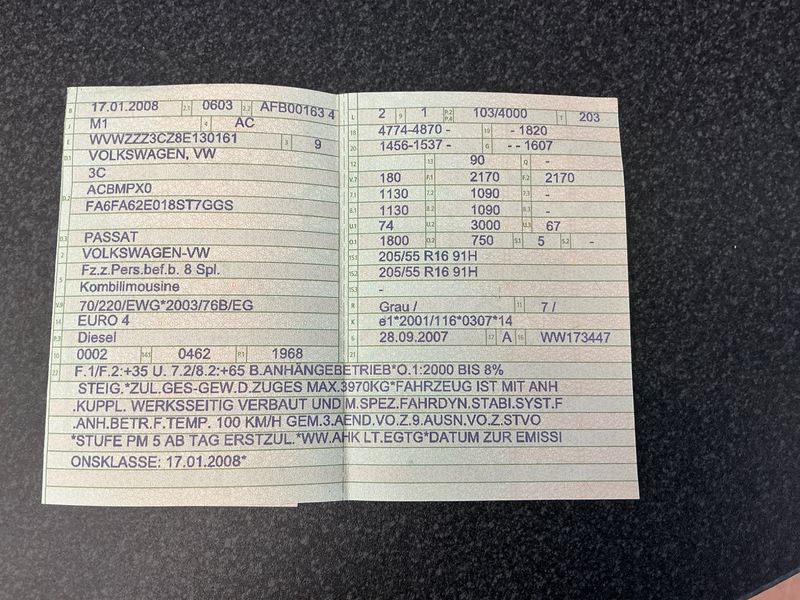 B 17.01.2008 2.1 0603 2.2 AFB00163 4
J M1 4 AC
E WVWZZZ3CZ8E130161 3 9
D.1 VOLKSWAGEN, VW
3C
D.2 ACBMPX0
FA6FA62E018ST7GGS
D.3 PASSAT
2 VOLKSWAGEN-VW
5 Fz.z.Pers.bef.b. 8 Spl.
Kombilimousine
V.9 70/220/EWG*2003/76B/EG
14 EURO 4
P.3 Diesel
10 0002 14.1 0462 P.1 1968
L 2 9 1 P.2 P.4 103/4000 T 203
18 4774-4870 - 19 - 1820
20 1456-1537 - G - - 1607
12 - 13 90 Q -
V.7 180 F.1 2170 F.2 2170
7.1 1130 7.2 1090 7.3 -
8.1 1130 8.2 1090 8.3 -
U.1 74 U.2 3000 U.3 67
O.1 1800 O.2 750 S.1 5 S.2 -
15.1 205/55 R16 91H
15.2 205/55 R16 91H
15.3 -
R Grau / 11 7 /
K e1*2001/116*0307*14
6 28.09.2007 17 A 16 WW173447
21
22 F.1/F.2:+35 U. 7.2/8.2:+65 B.ANHÄNGEBETRIEB*O.1:2000 BIS 8%
STEIG.*ZUL.GES-GEW.D.ZUGES MAX.3970KG*FAHRZEUG IST MIT ANH
.KUPPL. WERKSSEITIG VERBAUT UND M.SPEZ.FAHRDYN.STABI.SYST.F
.ANH.BETR.F.TEMP. 100 KM/H GEM.3.AEND.VO.Z.9.AUSN.VO.Z.STVO
*STUFE PM 5 AB TAG ERSTZUL.*WW.AHK LT.EGTG*DATUM ZUR EMISSI
ONSKLASSE: 17.01.2008*